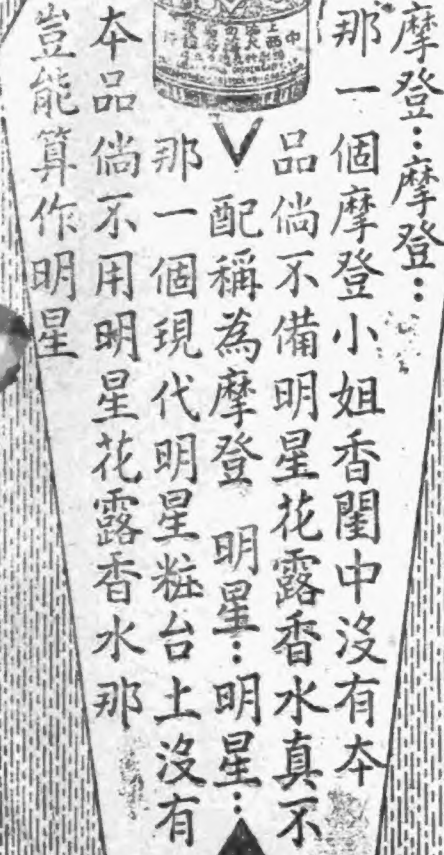 摩登…摩登…
那一個摩登小姐香閨中沒有本
品倘不備明星花露香水真不
配稱為摩登 明星…明星…
那一個現代明星粧台上沒有
本品倘不用明星花露香水那
豈能算作明星